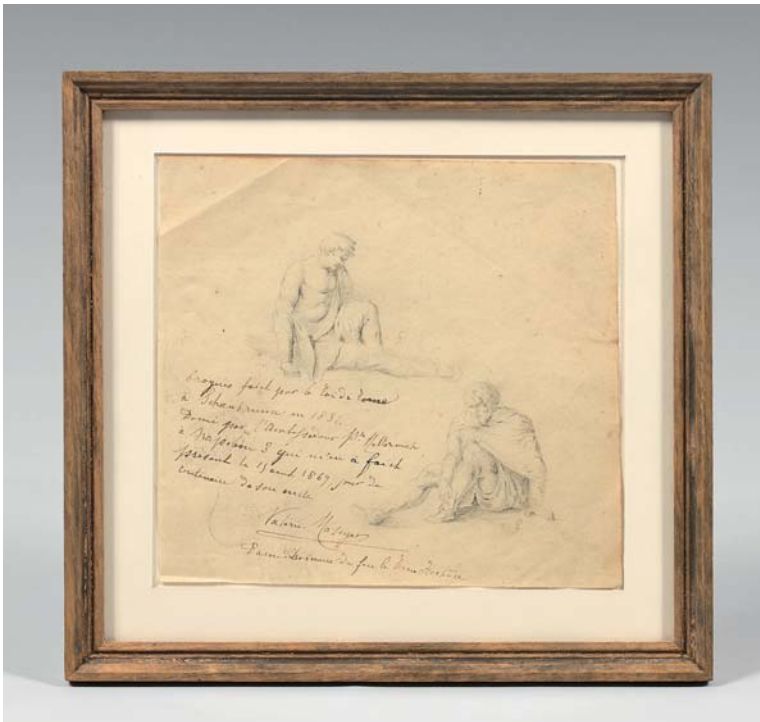 Croquis fait par le Roi de Rome
à Schoenbrunn en 183
Donné par l'Ambassadeur
à Napoléon 3 qui m'en a fait
présent le 15 aout 1869, jour du
centenaire de son oncle
Valérie Masuyer
Dame d'honneur de feu la Reine Hortense